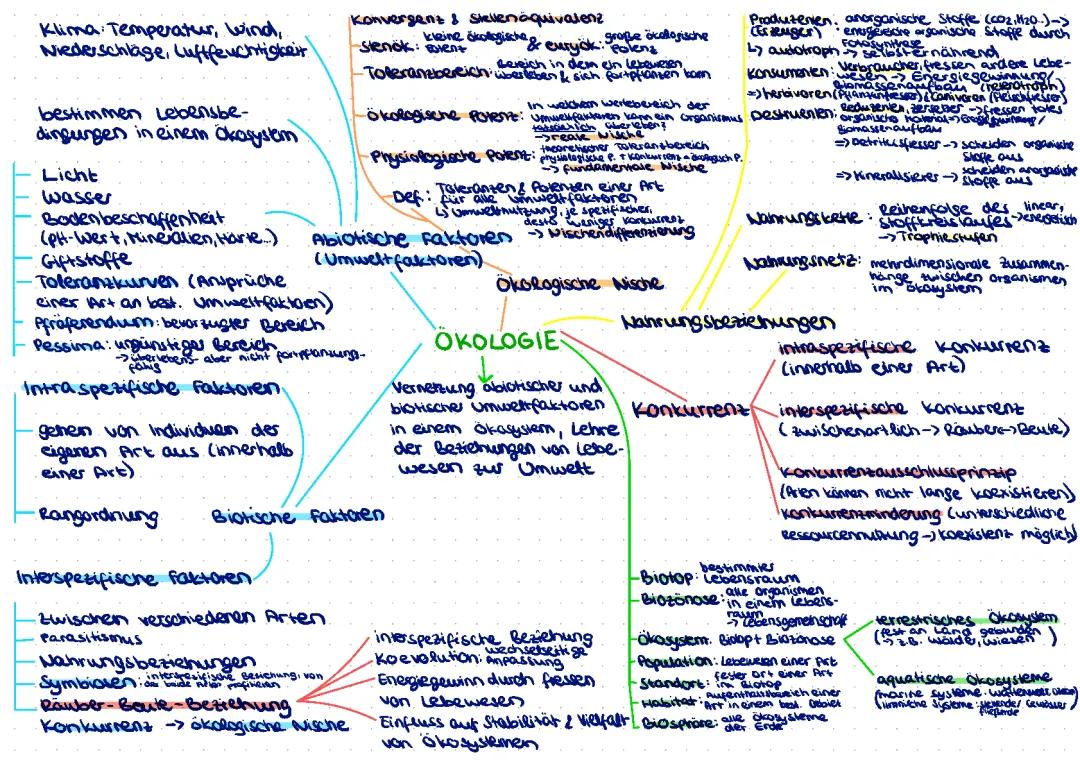 Klima: Temperatur, Wind,
Niederschläge, Luftfeuchtigkeit
bestimmen Lebensbe-
dingungen in einem Ökosystem
Licht
Wasser
Bodenbeschaffenheit
(pH-Wert, Mineralien, Härte...)
Giftstoffe
Toleranzkurven (Ansprüche
einer Art an best. Umweltfaktoren)
Präferendum: bevorzugter Bereich
Pessima: ungünstiger Bereich
→ überlebens- aber nicht fortpflanzungs-
fähig
Abiotische Faktoren
(Umweltfaktoren)
Konvergenz & Stellenäquivalenz
stenök: kleine ökologische Potenz & euryök: große ökologische Potenz
Toleranzbereich: Bereich in dem ein Lebewesen
überleben & sich fortpflanzen kann
Ökologische Potenz: In welchem Wertebereich der
Umweltfaktoren kann ein Organismus
tatsächlich überleben?
→ reale Nische
Physiologische Potenz: theoretischer Toleranzbereich
physiologische P. + Konkurrenz = ökologisch P.
→ fundamentale Nische
Def.: Toleranzen & Potenzen einer Art
für alle Umweltfaktoren
↳ Umweltnutzung, je spezifischer,
desto weniger Konkurrenz
→ Nischendifferenzierung
Ökologische Nische
Produzenten: anorganische Stoffe (CO2, H2O..) →
(Erzeuger) energiereiche organische Stoffe durch
Fotosynthese
↳ autotroph → selbsternährend
Konsumenten: Verbraucher, fressen andere Lebe-
wesen → Energiegewinnung/
Biomassenaufbau (heterotroph)
⇒ herbivoren (Pflanzenfresser) & Carnivoren (Fleischfresser)
Destruenten: Reduzenten, Zersetzer → fressen totes
organisches Material → Energiegewinnung/
Biomassenaufbau
⇒ Detritusfresser → scheiden organische
Stoffe aus
⇒ Mineralisierer → scheiden anorganische
Stoffe aus
Nahrungskette: Reihenfolge des linear,
Stoffkreislaufes → energetisch
→ Trophiestufen
Nahrungsnetz: mehrdimensionale Zusammen-
hänge zwischen Organismen
im Ökosystem
Nahrungsbeziehungen
ÖKOLOGIE
Vernetzung abiotischer und
biotischer Umweltfaktoren
in einem Ökosystem, Lehre
der Beziehungen von Lebe-
wesen zur Umwelt
Konkurrenz
intraspezifische Konkurrenz
(innerhalb einer Art)
interspezifische Konkurrenz
(zwischenartlich → Räuber → Beute)
Konkurrenzausschlussprinzip
(Arten können nicht lange koexistieren)
Konkurrenzminderung (unterschiedliche
Ressourcennutzung → Koexistenz möglich)
Intraspezifische Faktoren
gehen von Individuen der
eigenen Art aus (innerhalb
einer Art)
Rangordnung
Biotische Faktoren
Interspezifische Faktoren
zwischen verschiedenen Arten
Parasitismus
Nahrungsbeziehungen
Symbiosen: interspezifische Beziehung, von
der beide Arten profitieren
Räuber-Beute-Beziehung
Konkurrenz → ökologische Nische
interspezifische Beziehung
Koevolution: wechselseitige Anpassung
Energiegewinn durch fressen
von Lebewesen
Einfluss auf Stabilität & Vielfalt
von Ökosystemen
Biotop: bestimmter
Lebensraum
Biozönose: alle Organismen
in einem Lebens-
raum
→ Lebensgemeinschaft
Ökosystem: Biotop + Biozönose
Population: Lebewesen einer Art
Standort: fester Ort einer Art
im Biotop
Habitat: Aufenthaltsbereich einer
Art in einem best. Gebiet
Biosphäre: alle Ökosysteme
der Erde
terrestrisches Ökosystem
(fest an Land gebunden
→ z.B. Wälder, Wiesen)
aquatische Ökosysteme
(marine Systeme:
(limnische Systeme: stehender Gewässer
fließende